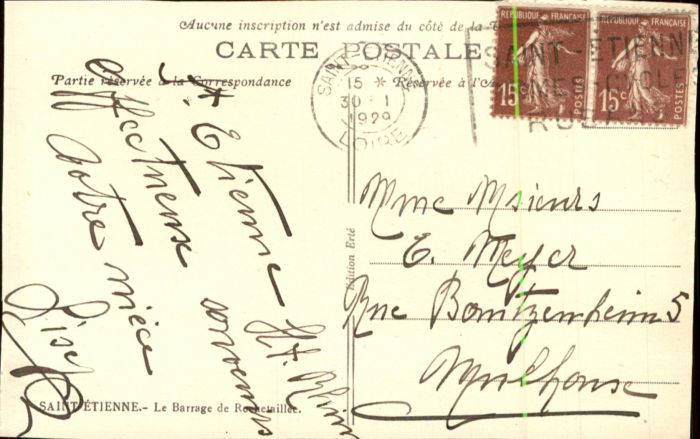 Aucune inscription n'est admise du côté de la
CARTE POSTALE
Partie réservée à la Correspondance
Réservée à l'A
SAINT-ETIENNE
15 *
30 - 1
1929
LOIRE
SAINT-ÉTIENNE
ARMES-CYCLES
RUBANS
REPUBLIQUE FRANÇAISE
15c
POSTES
REPUBLIQUE FRANÇAISE
15c
POSTES
St Etienne
affectueux souvenirs
Votre nièce
Lise
Ht. Rhin
Mme Msieurs
E. Meyer
Rue Bantzenheim 5
Mulhouse
Edition Erté
SAINT-ÉTIENNE.- Le Barrage de Rochetaillée.